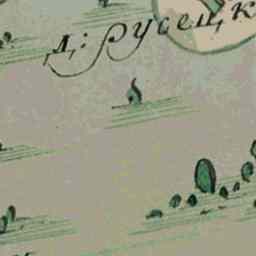 д: русецк